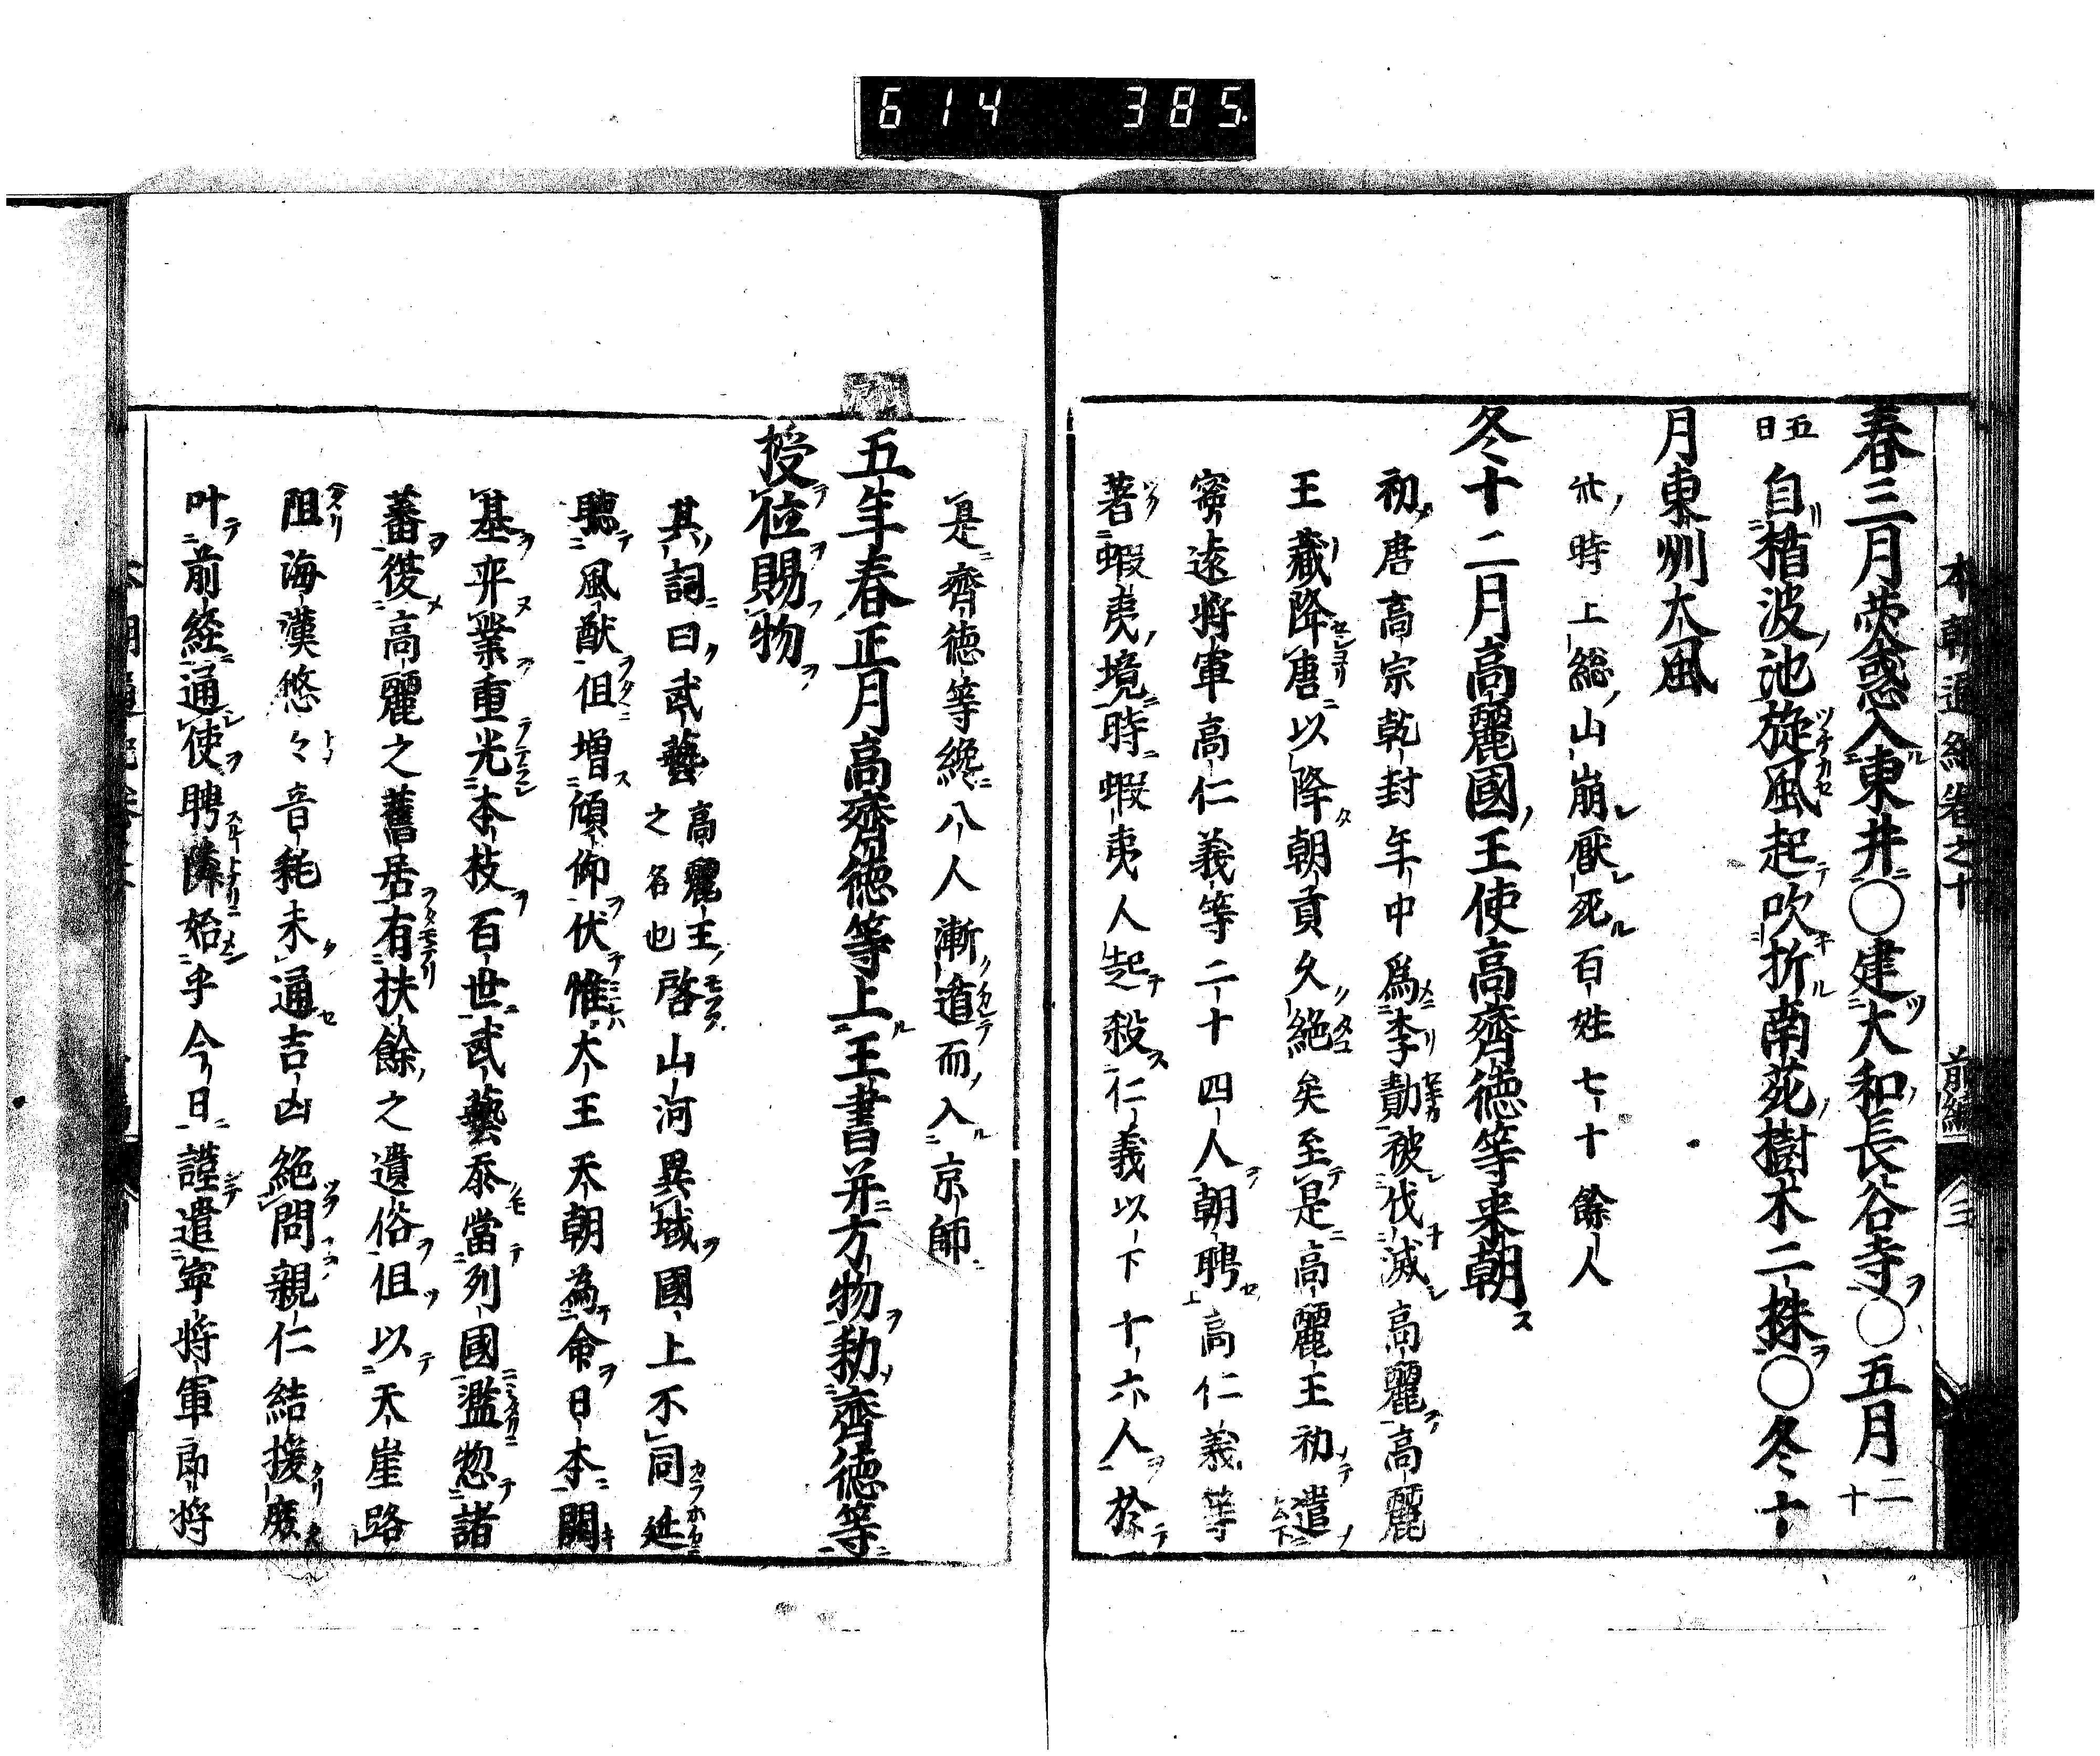 614 385
本朝通紀卷之十 前編 八 三
春三月熒惑入東井〇建大和長谷寺〇五月二十
五日自楯波池旋風起吹折南苑樹木二株〇冬十
月東州大風
此時上総山崩厭死百姓七十餘人
冬十二月高麗國王使高齊徳等来朝
初唐高宗乾封年中爲李勣被伐滅高麗高麗
王藏降唐以降朝貢久絶矣至是高麗王初遣
寧遠将軍高仁義等二十四人朝聘高仁義等
著蝦夷境時蝦夷人起殺仁義以下十六人於
是齊徳等纔八人漸遁而入京師
五年春正月高齊徳等上王書并方物勅齊徳等
授位賜物
其詞曰武藝高麗王之名也啓山河異域國上不同延
聽風猷但增傾仰伏惟大王天朝為命日本開
基奕業重光本枝百世武藝忝當列國濫惣諸
蕃復高麗之舊居有扶餘之遺俗但以天崖路
阻海漢悠々音耗未通吉凶絶問親仁結援庶
叶前経通使聘隣始乎今日謹遣寧将軍郎将